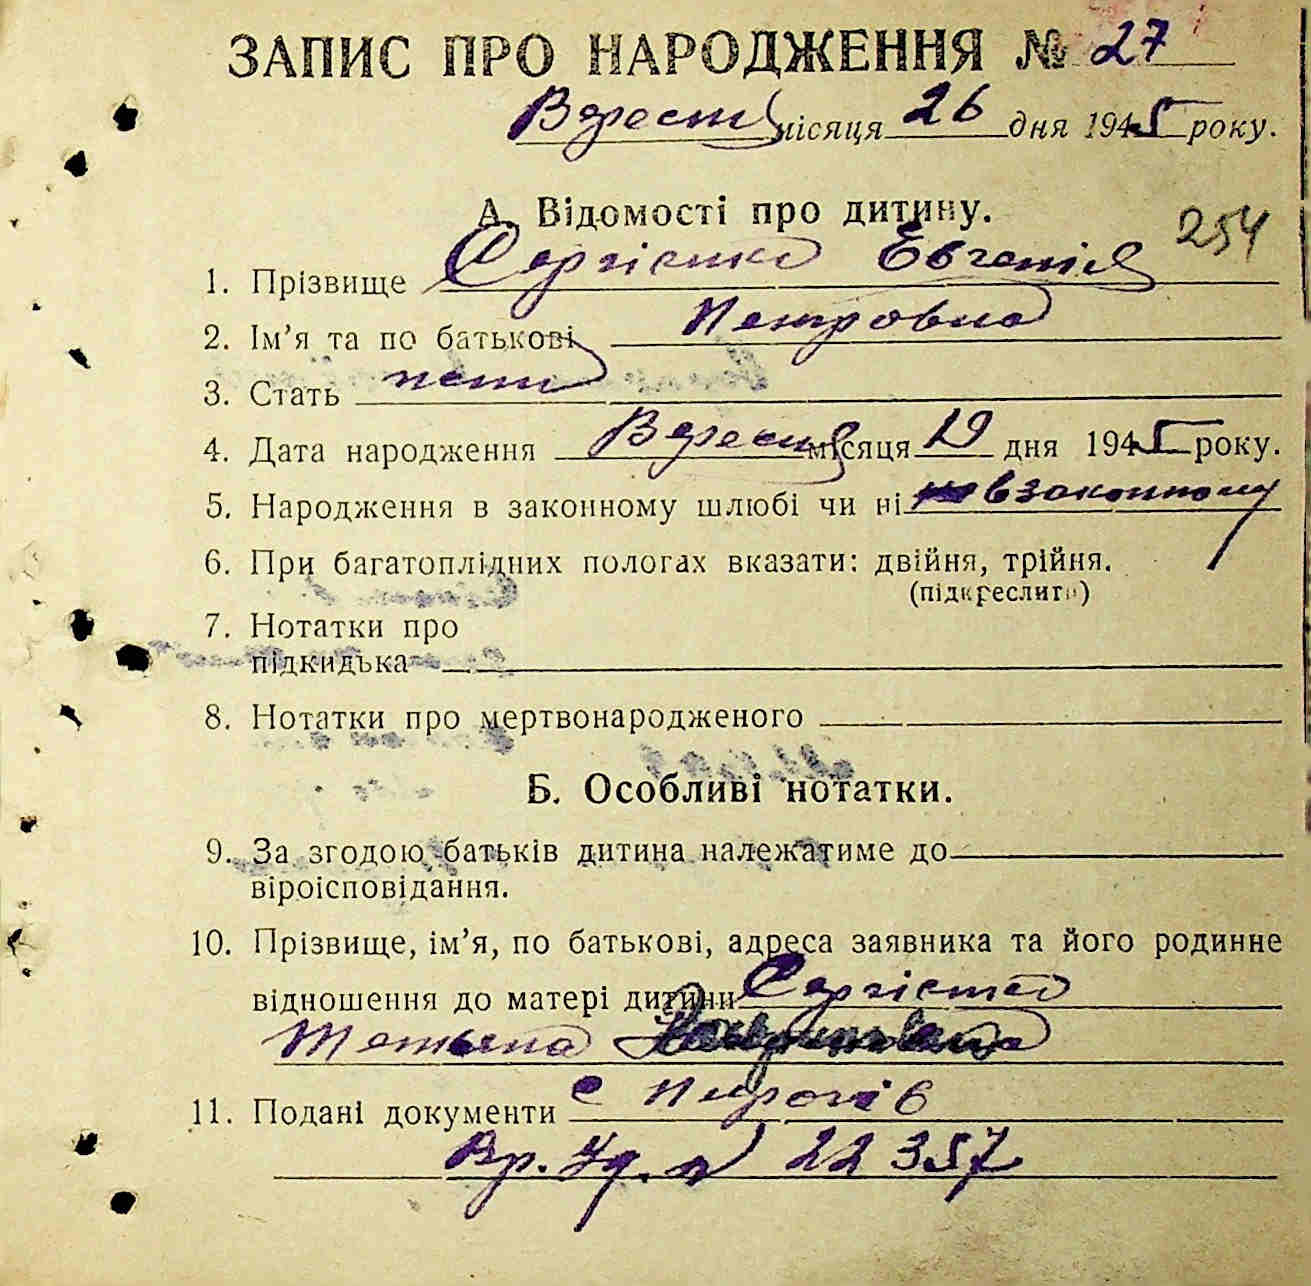 ЗАПИС ПРО НАРОДЖЕННЯ № 27
Вересня місяця 26 дня 1945 року.
А. Відомості про дитину.
254
1. Прізвище Сергієнко Евгенія
2. Ім’я та по батькові Петровна
3. Стать
4. Дата народження Вересня місяця 19 дня 1945 року.
5. Народження в законному шлюбі чи ні в законному
6. При багатоплідних пологах вказати: двійня, трійня.
(підкреслити)
7. Нотатки про
підкидька
8. Нотатки про мертвонародженого
Б. Особливі нотатки.
9. За згодою батьків дитина належатиме до
віроісповідання.
10. Прізвище, ім’я, по батькові, адреса заявника та його родинне
відношення до матері дитини Сергієнко
Тетьяна
с Пирогів
11. Подані документи
Вр. Уд. № 22357